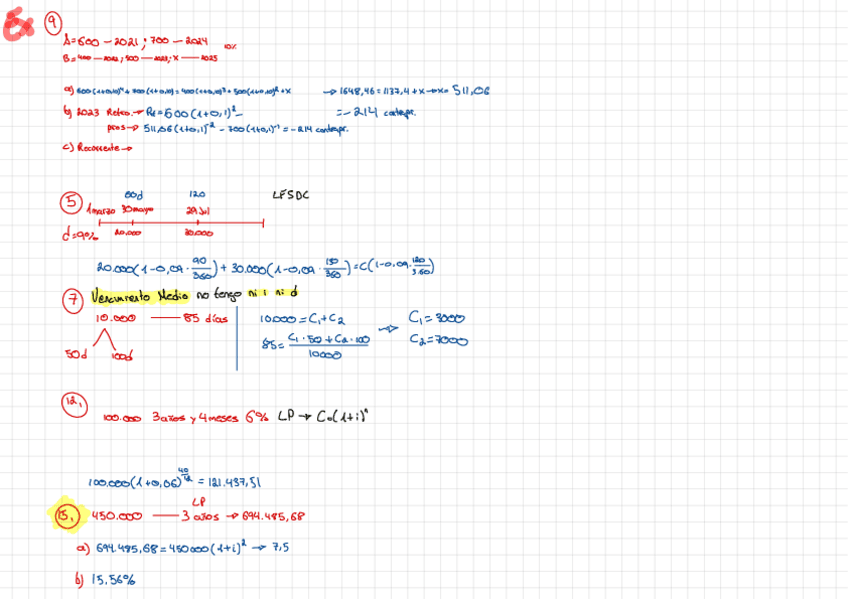 9
A=600 - 2021; 700 - 2024 10%
B=400 - 2022; 500 - 2023; x - 2025
a) 600(1+0,10)⁴ + 700(1+0,10) = 400(1+0,10)³ + 500(1+0,10)² + x → 1648,46 = 1137,4 + x → x = 511,06
b) 2023 Retro. → Rs = 600(1+0,1)² - = -214 contrapr.
pros → 511,06(1+0,1)⁻² - 700(1+0,1)⁻¹ = -214 contrapr.
c) Recorrente →
120 LFSDC
5 1 marzo 30 mayo 29 Jul
d=9% 20.000 30.000
20.000(1-0,09·90/360) + 30.000(1-0,09·150/360) = C(1-0,09·120/360)
7 Vencimiento Medio no tengo ni i ni d
10.000 — 85 días 10.000 = C₁ + C₂ C₁ = 3000
50d 100d 85 = C₁·50 + C₂·100 / 10000 → C₂ = 7000
12.
100.000 3 años y 4 meses 6% LP → C₀(1+i)ⁿ
100.000(1+0,06)^40/12 = 121.437,51
LP
15. 450.000 — 3 años → 694.485,68
a) 694.485,68 = 450000(1+i)² → 7,5
b) 15,56%